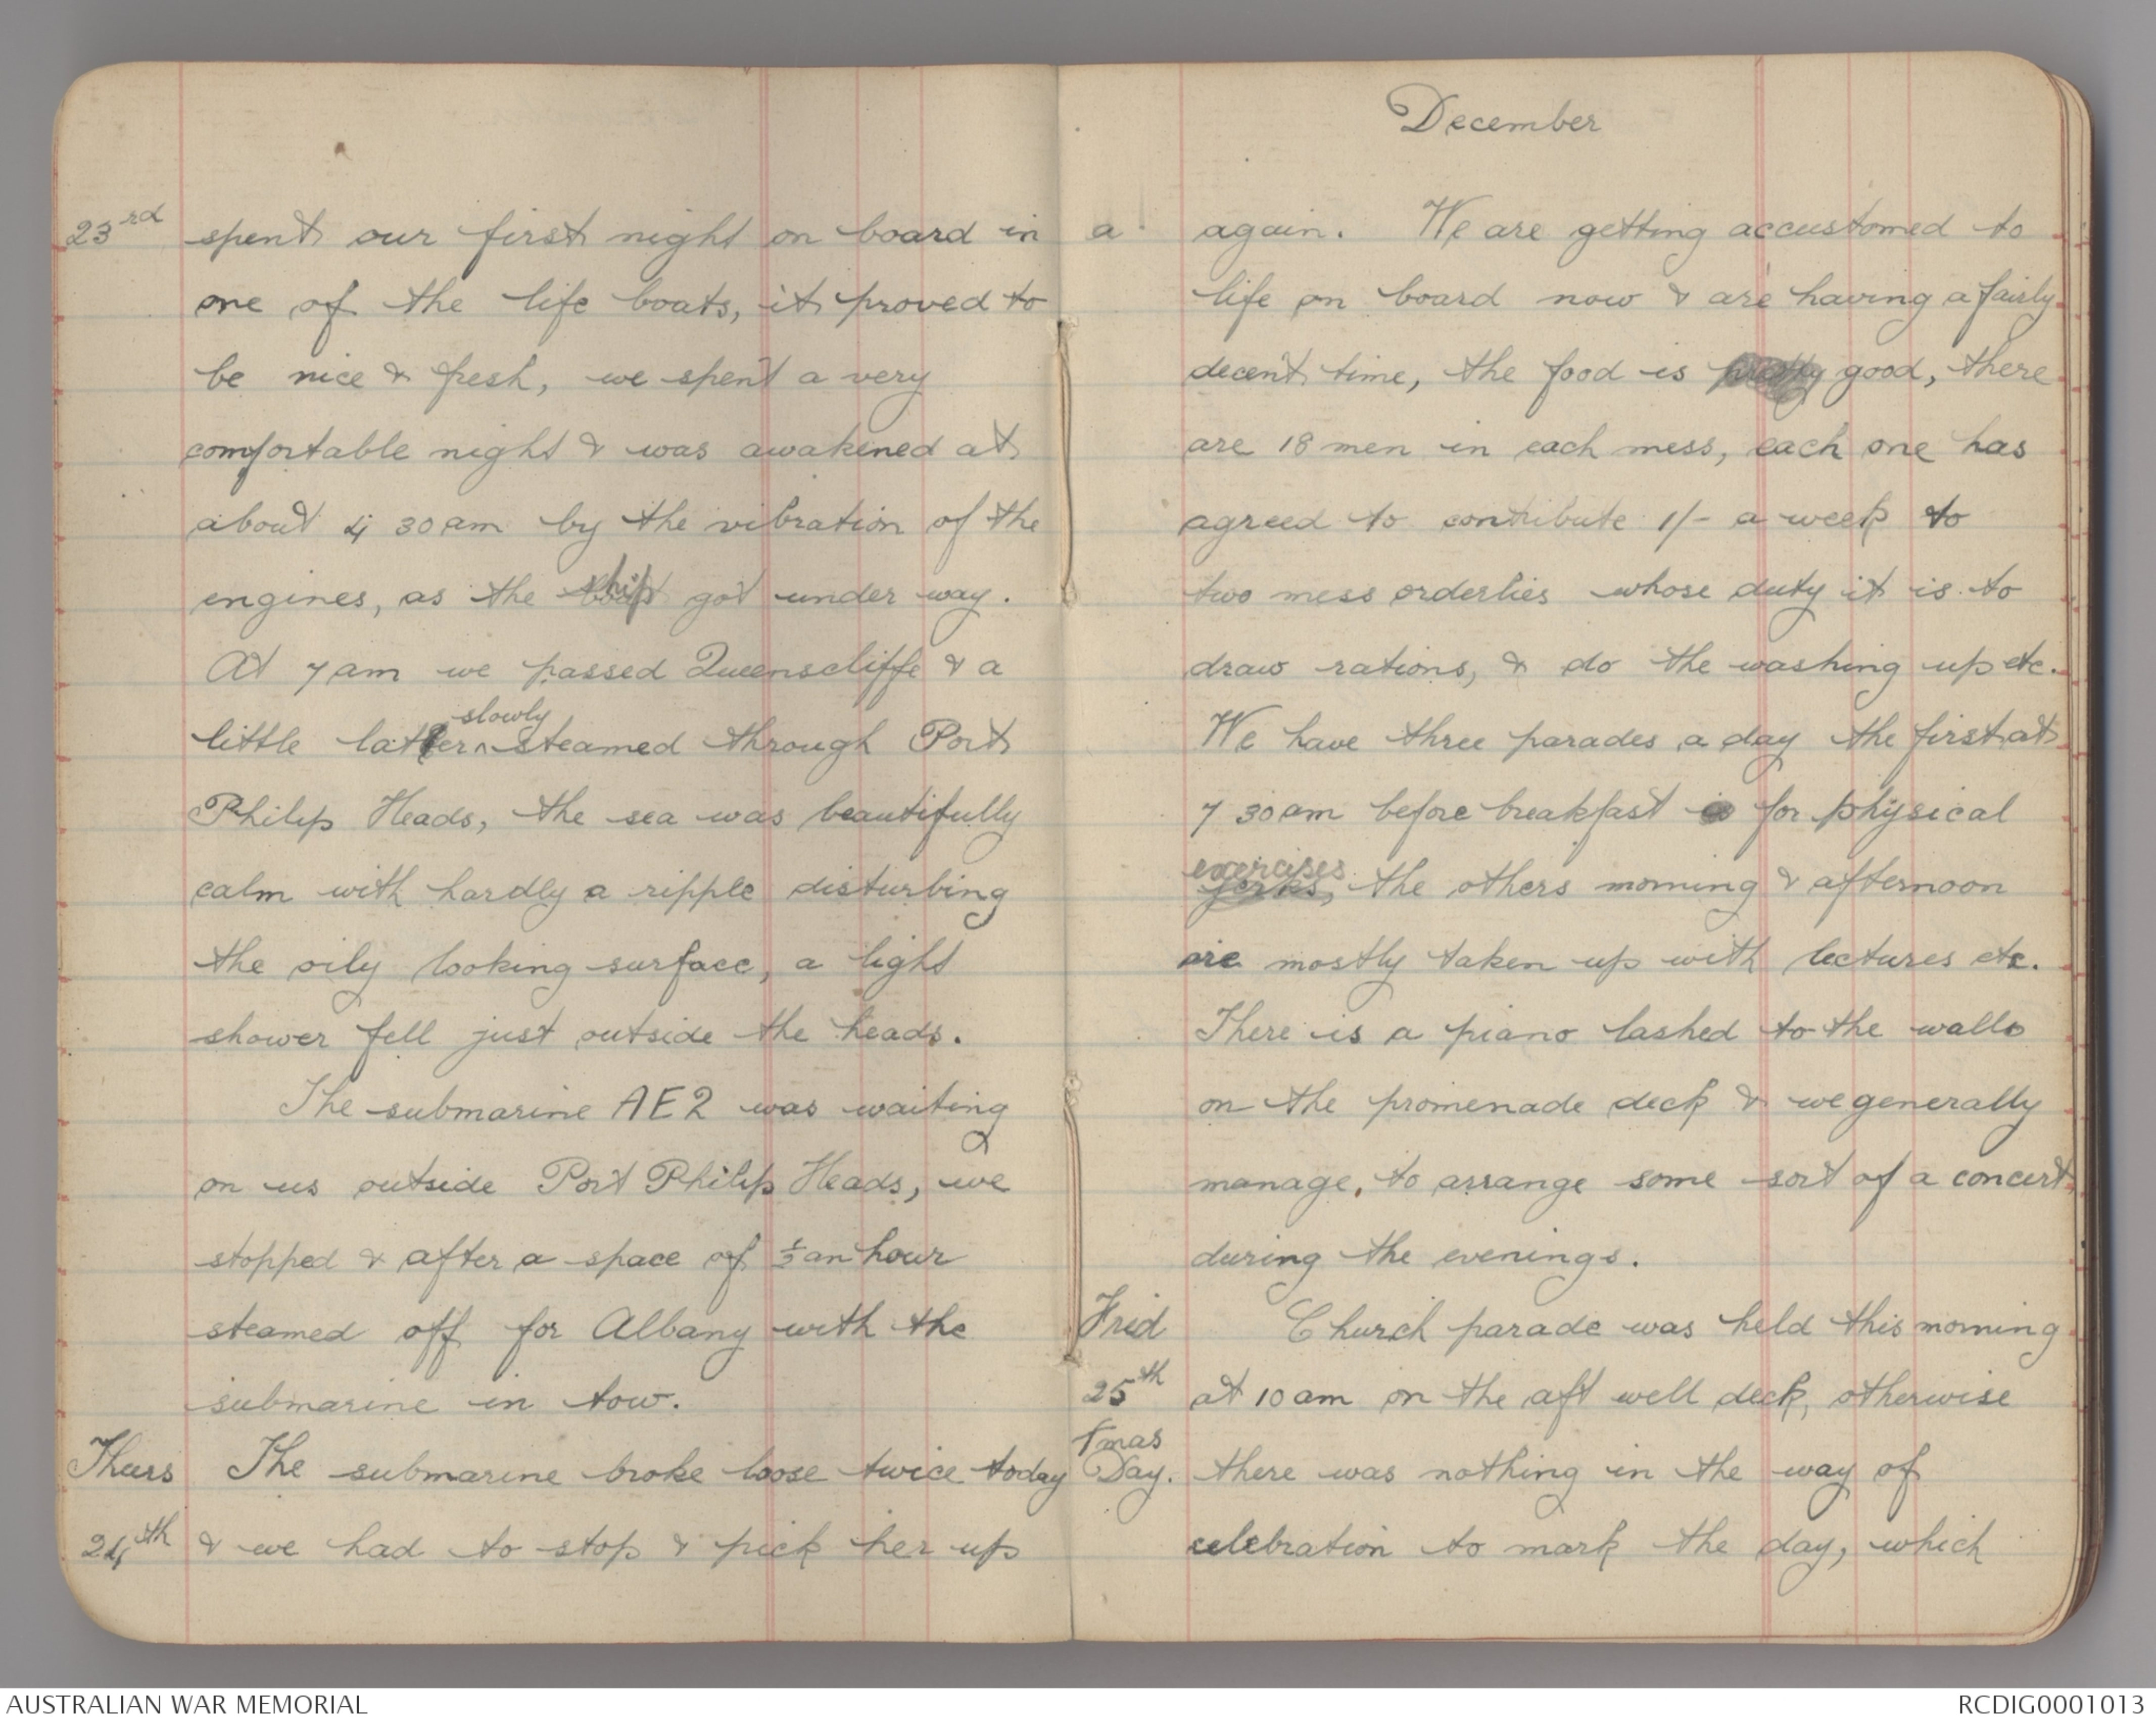 23rd spent our first night on board in
one of the life boats, it proved to
be nice & fresh, we spent a very
comfortable night & was awakened at
about 4 30 am by the vibration of the
engines, as the ship got under way.
At 7 am we passed Queenscliffe & a
little later slowly steamed through Port
Philip Heads, the sea was beautifully
calm with hardly a ripple disturbing
the oily looking surface, a light
shower fell just outside the heads.
The submarine AE2 was waiting
on us outside Port Philip Heads, we
stopped & after a space of ½ an hour
steamed off for Albany with the
submarine in tow.
Thurs The submarine broke loose twice today
24th & we had to stop & pick her up
December
a again. We are getting accustomed to
life on board now & are having a fairly
decent time, the food is pretty good, there
are 18 men in each mess, each one has
agreed to contribute 1/- a week to
two mess orderlies whose duty it is to
draw rations, & do the washing up etc.
We have three parades a day the first at
7 30 am before breakfast is for physical
exercises
jerks, the others morning & afternoon
are mostly taken up with lectures etc.
There is a piano lashed to the walls
on the promenade deck & we generally
manage, to arrange some sort of a concert
during the evenings.
Frid Church parade was held this morning
25th at 10 am on the aft well deck, otherwise
Xmas
Day. there was nothing in the way of
celebration to mark the day, which
AUSTRALIAN WAR MEMORIAL
RCDIG0001013